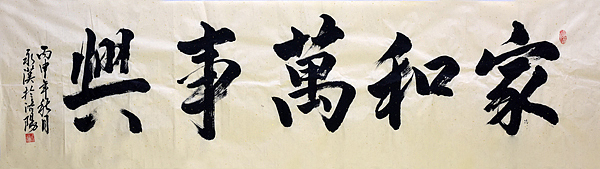 家和萬事興
丙申年秋月
永漢於洛陽